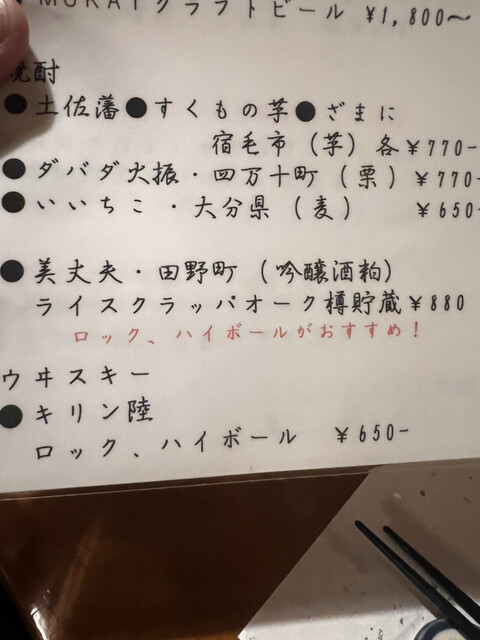 MURAIクラフトビール ¥1,800〜
焼酎
●土佐藩●すくもの芋●ざまに
宿毛市（芋）各¥770-
●ダバダ火振・四万十町（栗）¥770-
●いいちこ・大分県（麦） ¥650-
●美丈夫・田野町（吟醸酒粕）
ライスクラッパオーク樽貯蔵¥880
ロック、ハイボールがおすすめ！
ウヰスキー
●キリン陸
ロック、ハイボール ¥650-